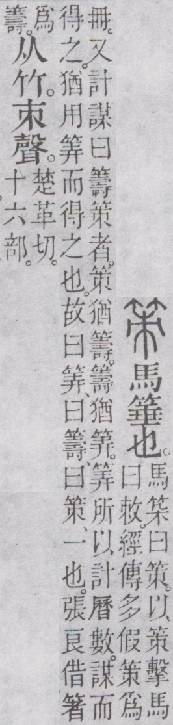 策馬箠也。馬箠曰策。以策擊馬
曰敇。經傳多假策爲
冊。又計謀曰籌策者。策猶籌。籌猶筭。筭所以計曆數。謀而
得之。猶用筭而得之也。故曰筭、曰籌、曰策、一也。張良借箸
爲籌。从竹。朿聲。楚革切。
十六部。